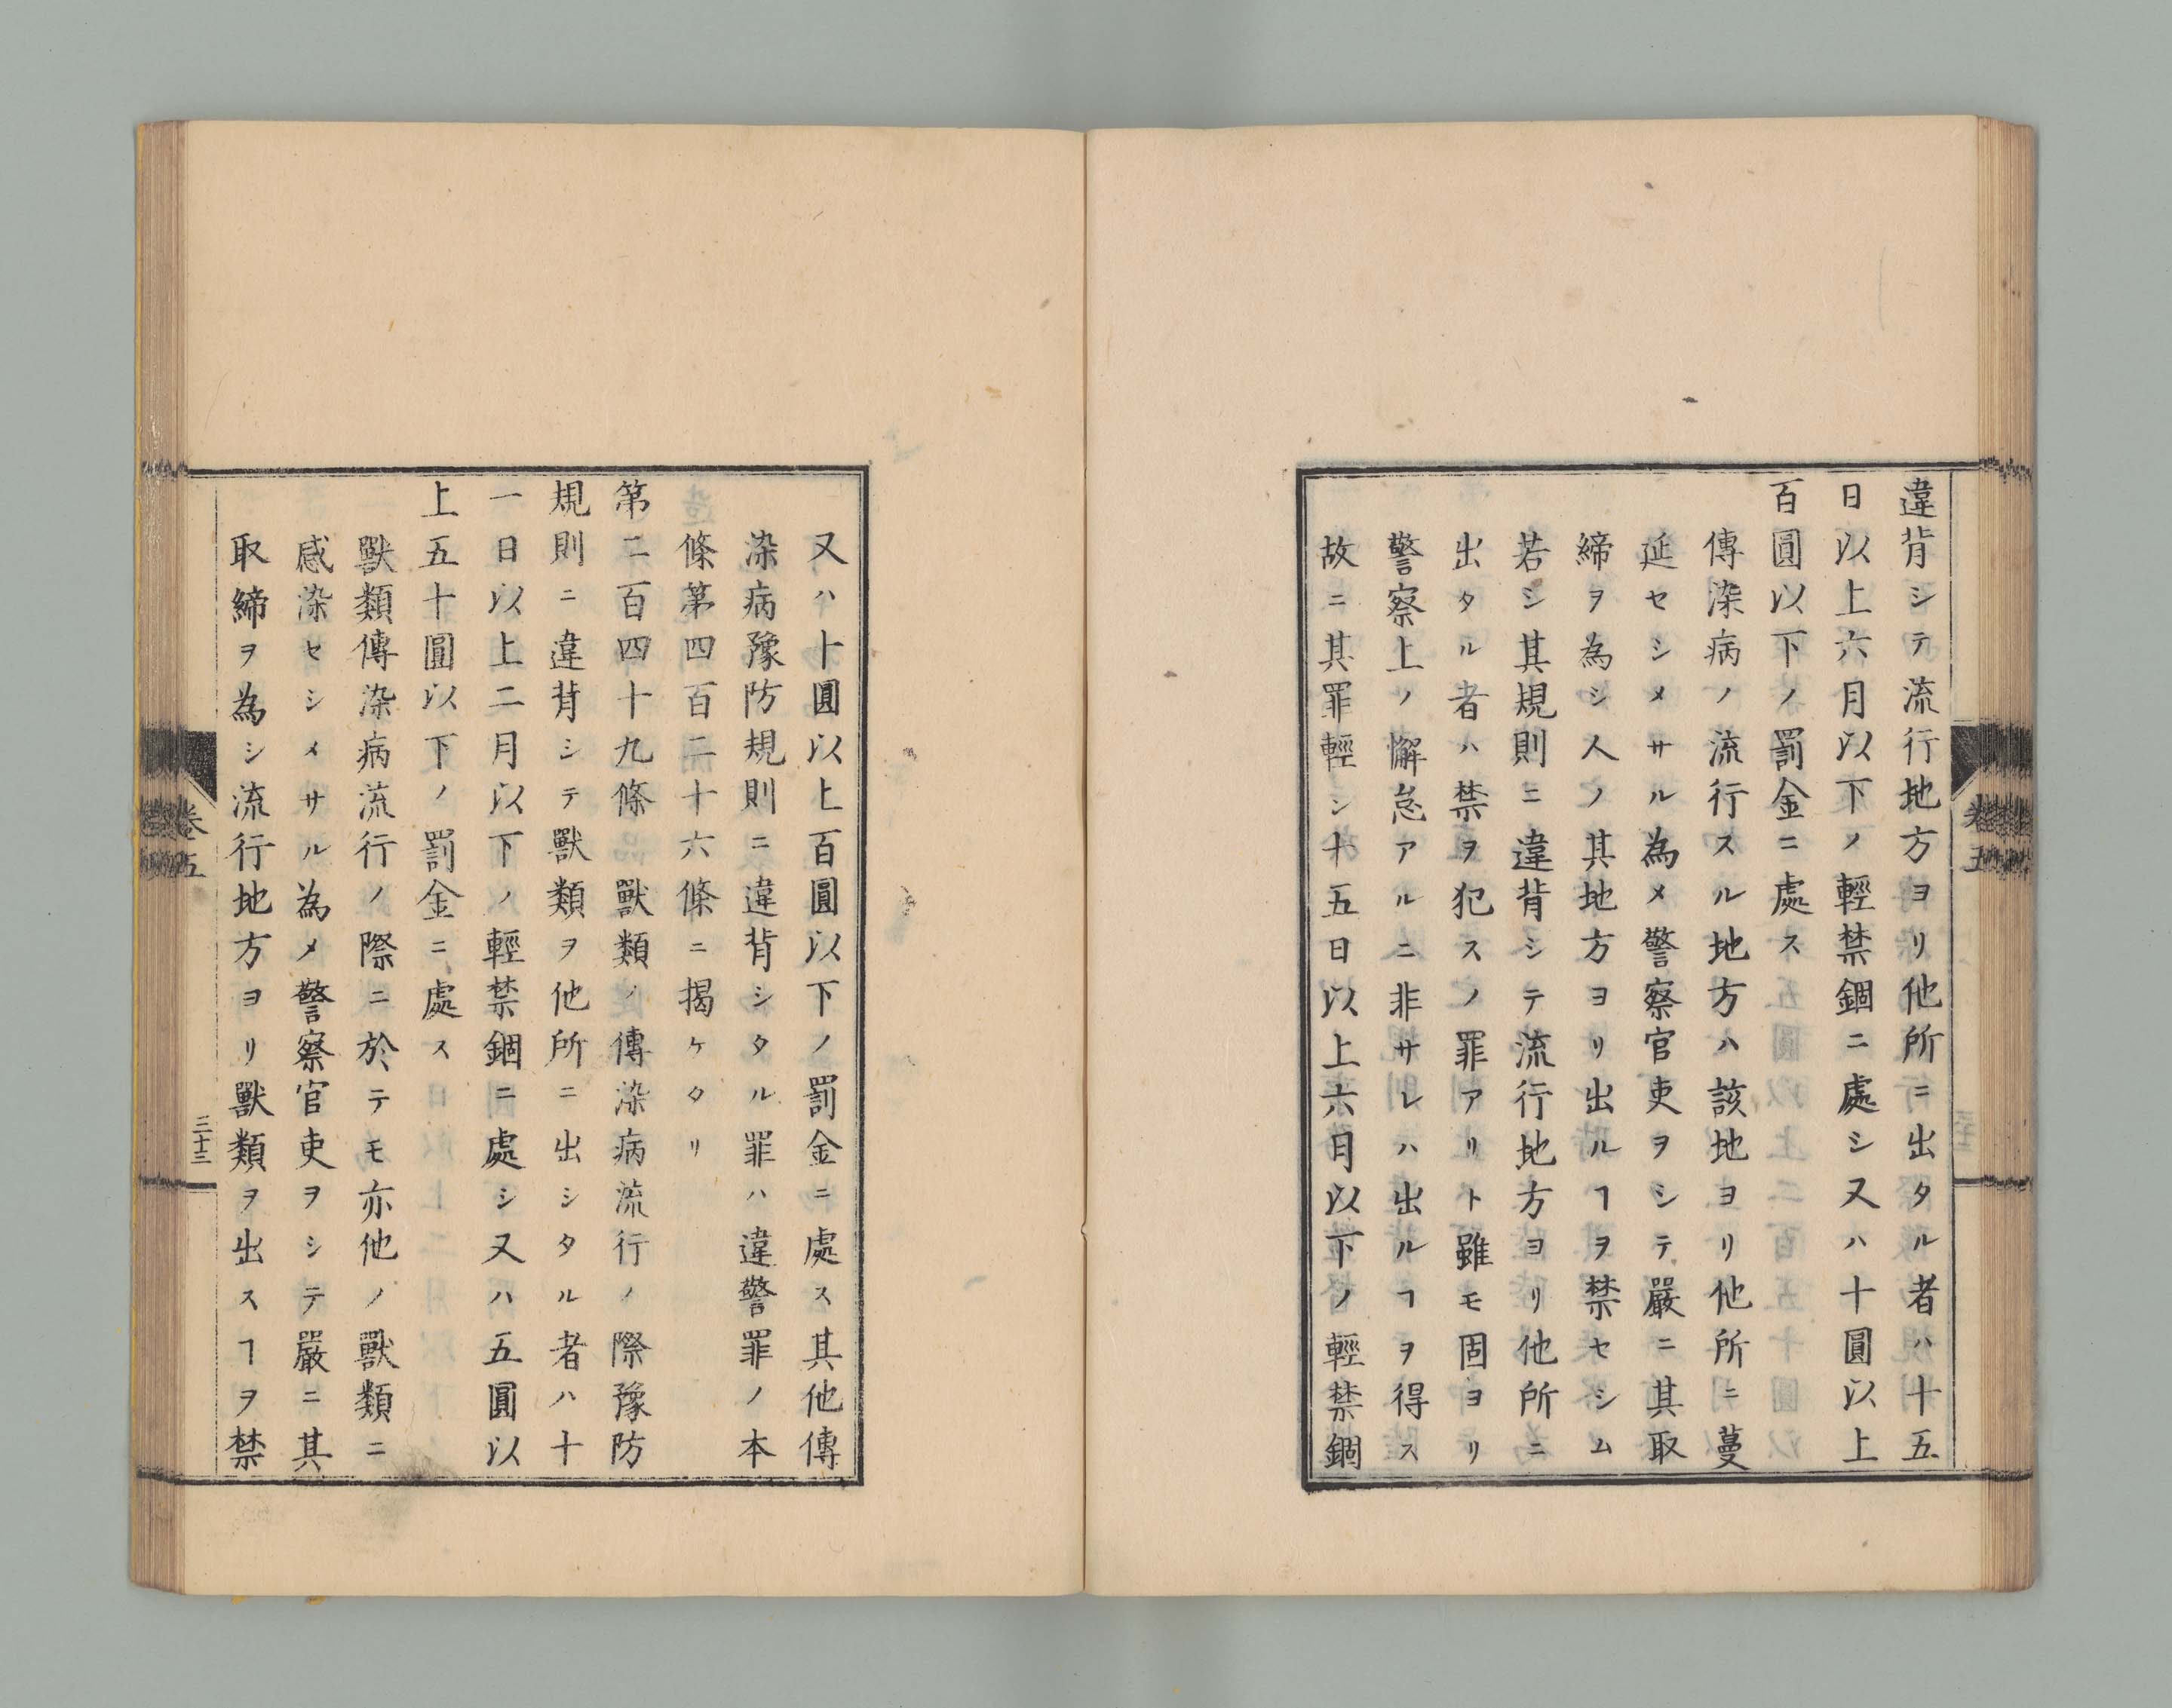 違背シテ流行地方ヨリ他所ニ出タル者ハ十五
日以上六月以下ノ輕禁錮ニ處シ又ハ十圓以上
百圓以下ノ罰金ニ處ス
傳染病ノ流行スル地方ハ該地ヨリ他所ニ蔓
延セシメサル為メ警察官吏ヲシテ嚴ニ其取
締ヲ為シ人ノ其地方ヨリ出ルヿヲ禁セシム
若シ其規則ニ違背シテ流行地方ヨリ他所ニ
出タル者ハ禁ヲ犯スノ罪アリト雖モ固ヨリ
警察上ノ懈怠アルニ非サレハ出ルヿヲ得ス
故ニ其罪輕シ十五日以上六月以下ノ輕禁錮
又ハ十圓以上百圓以下ノ罰金ニ處ス其他傳
染病豫防規則ニ違背シタル罪ハ違警罪ノ本
條第四百二十六條ニ揭ケタリ
第二百四十九條 獸類ノ傳染病流行ノ際豫防
規則ニ違背シテ獸類ヲ他所ニ出シタル者ハ十
一日以上二月以下ノ輕禁錮ニ處シ又ハ五圓以
上五十圓以下ノ罰金ニ處ス
獸類傳染病流行ノ際ニ於テモ亦他ノ獸類ニ
感染セシメサル為メ警察官吏ヲシテ嚴ニ其
取締ヲ為シ流行地方ヨリ獸類ヲ出スヿヲ禁
卷五
三十三